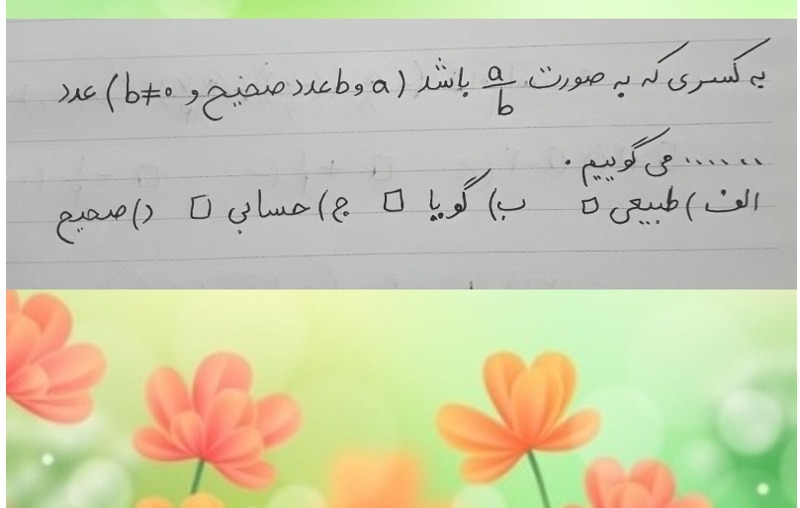 به کسری که به صورت a/b باشد (a و b عدد صحیح و b≠0) عدد
...... می گوییم.
الف) طبیعی □ ب) گویا □ ج) حسابی □ د) صحیح